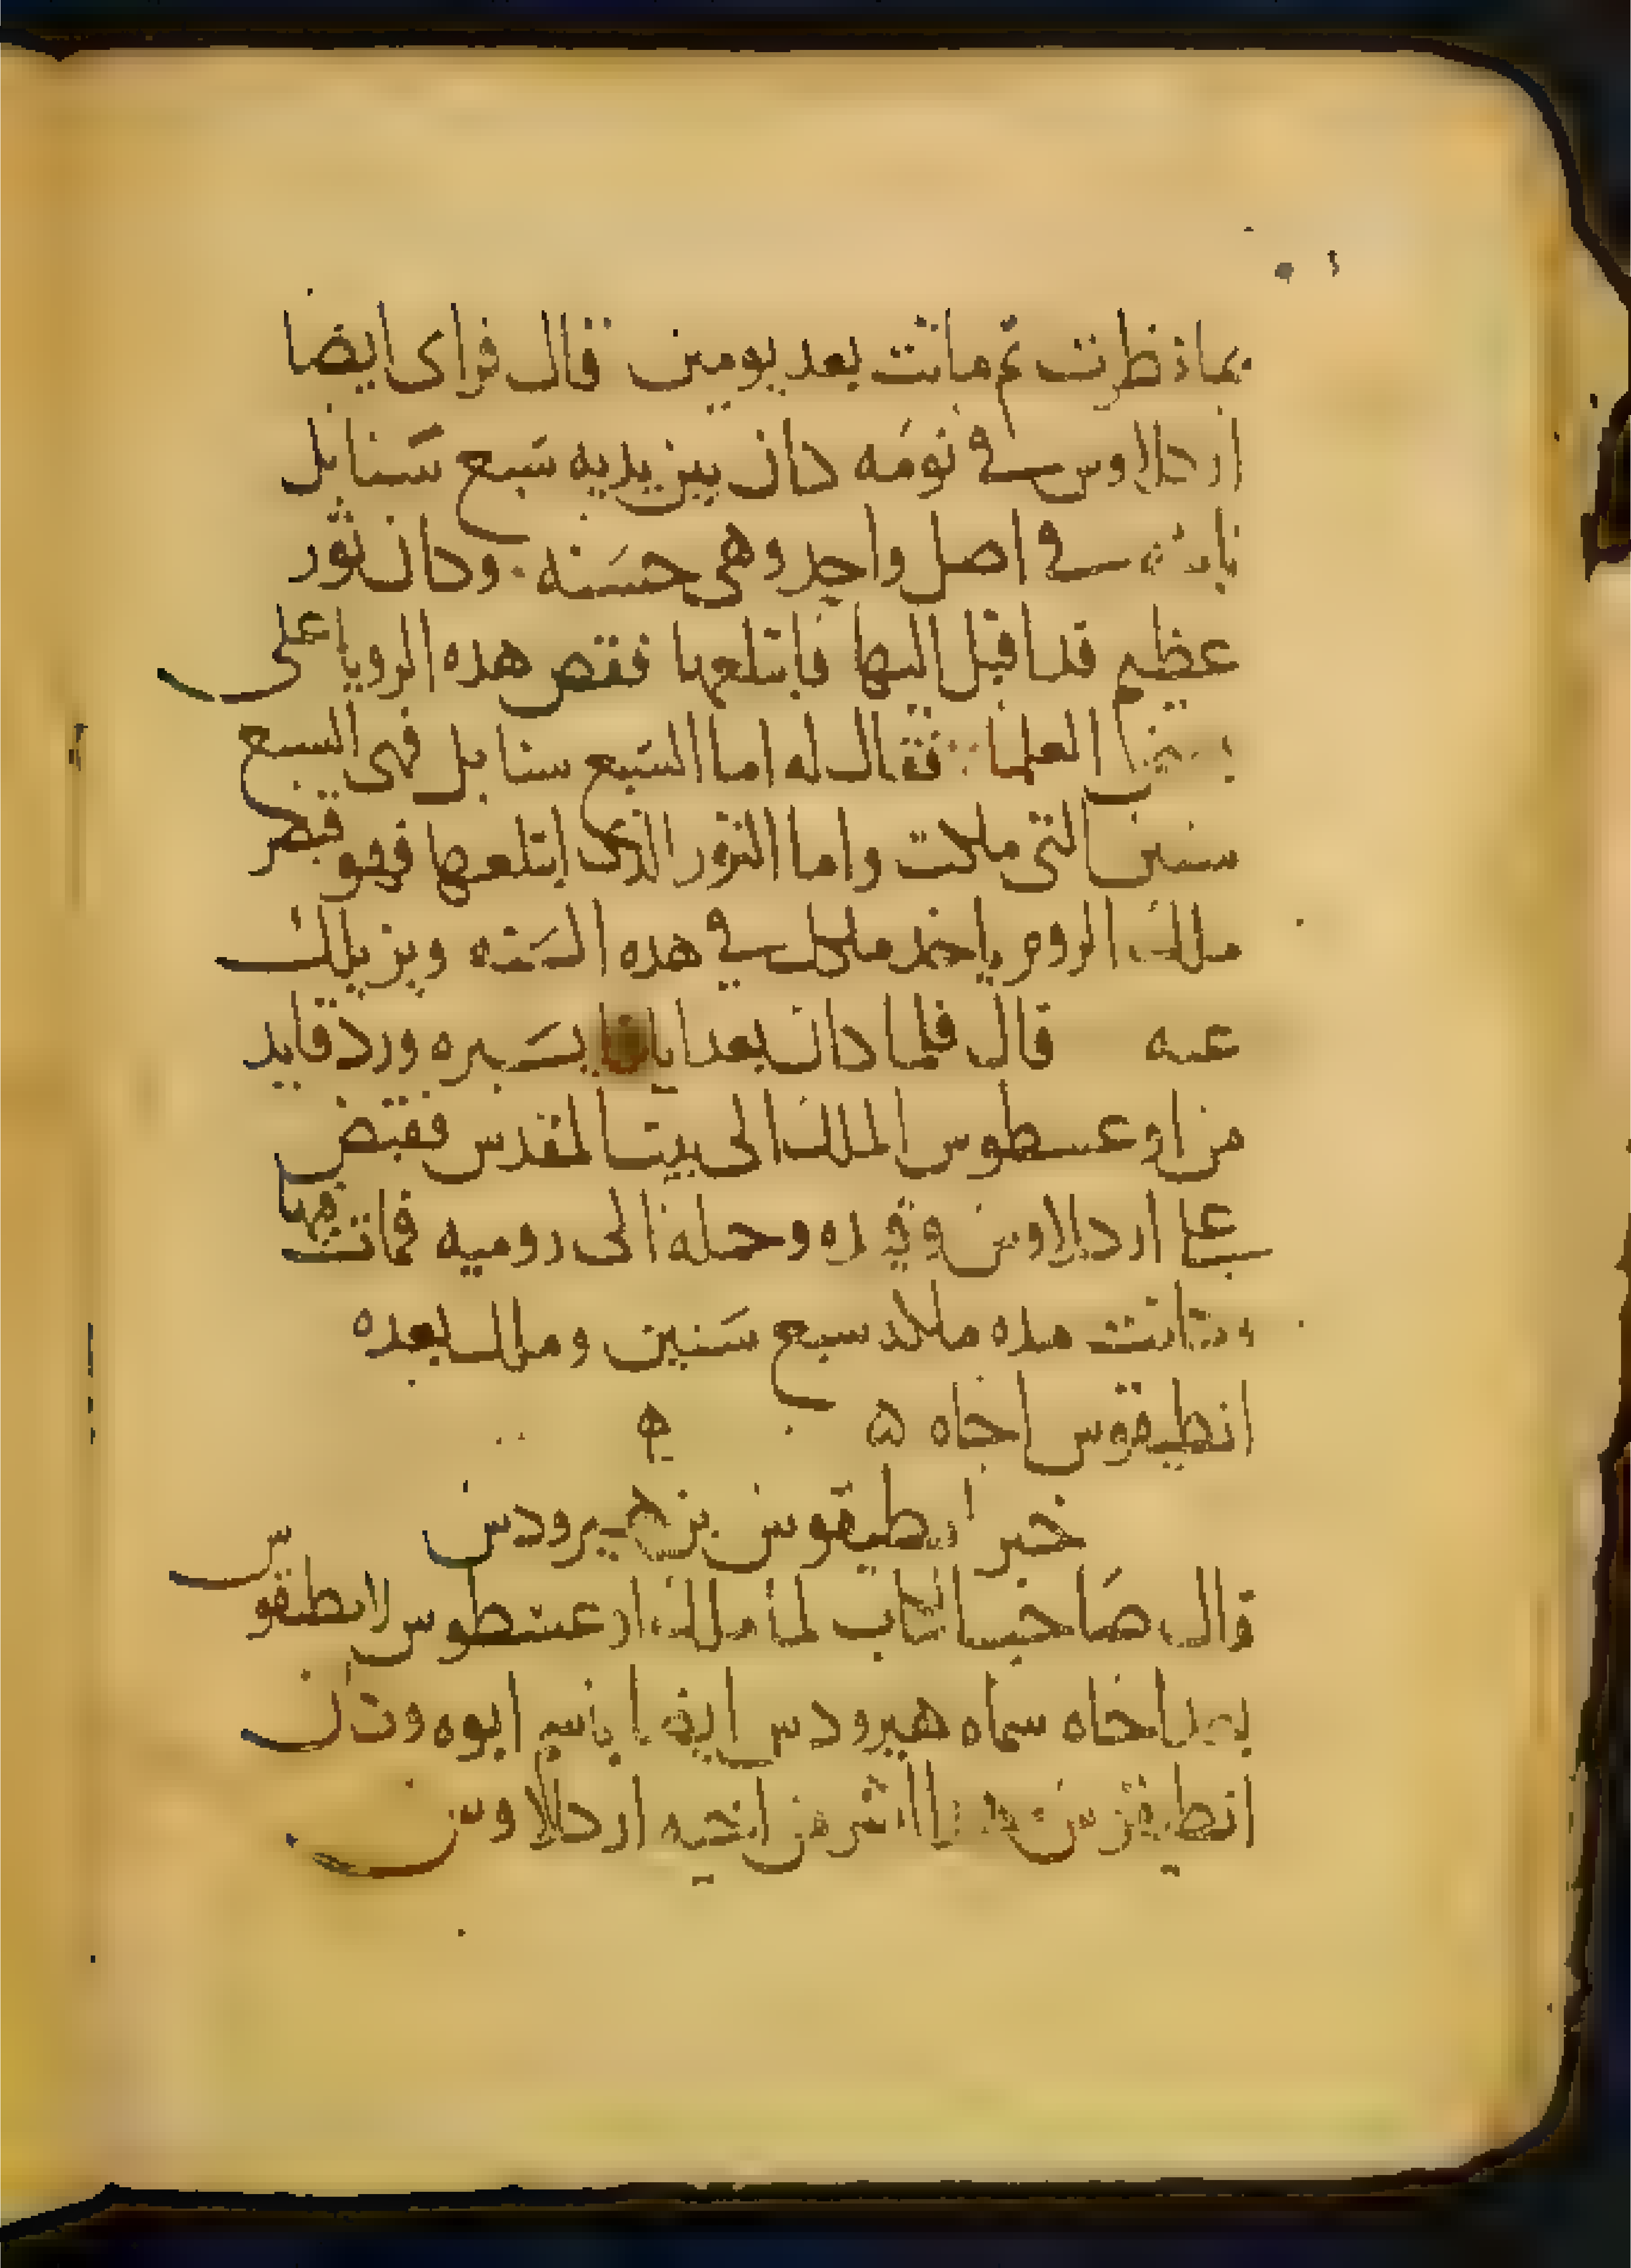 بما نظرت ثم ماتت بعد يومين قال فراى ايضا
اركلاوس في نومه كان بين يديه سبع سنابل
نابته في اصل واحد وهى حسنه وكان ثور
عظيم قد اقبل اليها فابتلعها فقص هده الرويا على
بعض العلما فقال له اما السبع سنابل فهى السبع
سنين التى ملكت واما الثور الدى ابتلعها فهو قيصر
ملك الروم ياخد ملكك في هده السنه ويزيلك
عنه قال فلما كان بعد ايام يسيره ورد قايد
من اوغسطوس الملك الى بيت المقدس فقبض
على اركلاوس وقيده وحمله الى روميه فمات بها
وكانت مده ملكه سبع سنين وملك بعده
انطيقوس اخاه ه ه
خبر انطيقوس بن هيرودس
قال صاحب الكتاب لما ملك اوغسطوس لانطيقوس
بعد اخاه سماه هيرودس ايضا باسم ابوه وكان
انطيقوس هدا اشر من اخيه اركلاوس